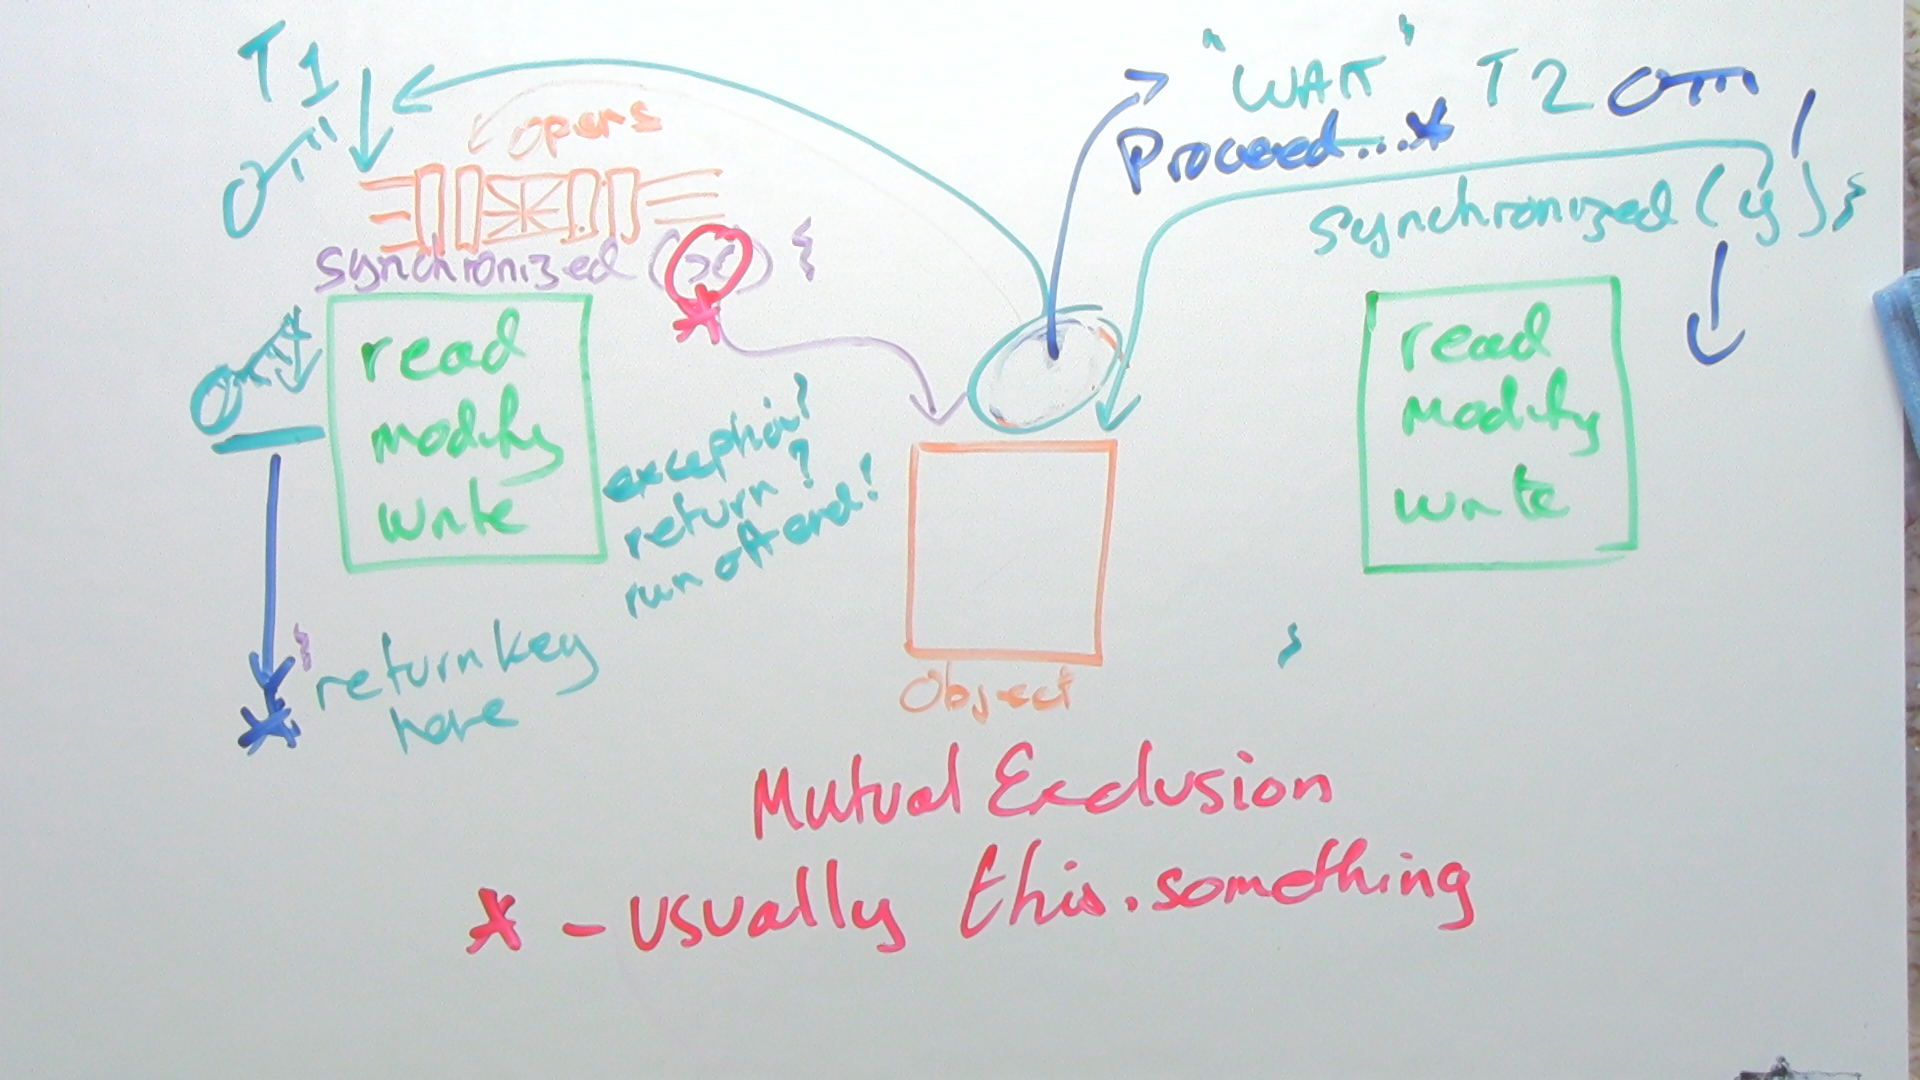 T1
opens
synchronized (x) {
read
modify
write
exception?
return?
run off end!
}
return key
here
"WAIT" T2
Proceed...*
synchronized (y) {
read
modify
write
}
Object
Mutual Exclusion
* - usually this.something